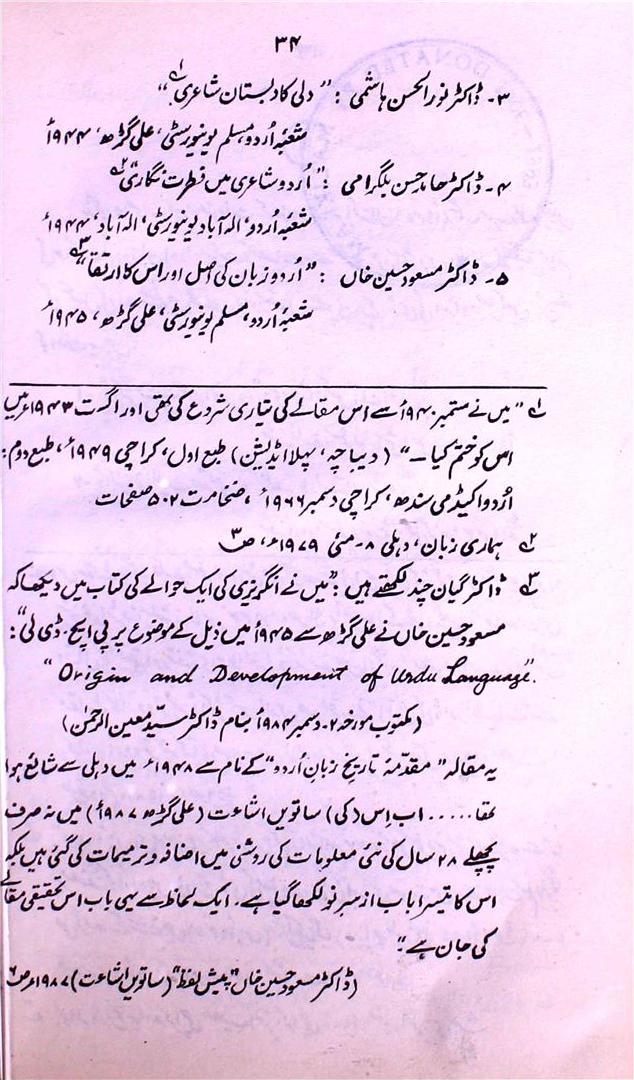 ۳۴
۳۔ ڈاکٹر نور الحسن ہاشمی : "دلی کا دبستان شاعری"۱؎
شعبۂ اُردو، مسلم یونیورسٹی، علی گڑھ، ۱۹۴۴ء
۴۔ ڈاکٹر حامد حسن بلگرامی : "اُردو شاعری میں فطرت نگاری"۲؎
شعبۂ اُردو، الہ آباد یونیورسٹی، الہ آباد، ۱۹۴۴ء
۵۔ ڈاکٹر مسعود حسین خاں : "اُردو زبان کی اصل اور اس کا ارتقا"۳؎
شعبۂ اُردو، مسلم یونیورسٹی، علی گڑھ، ۱۹۴۵ء
۱؎ "میں نے ستمبر ۱۹۴۰ء سے اس مقالے کی تیاری شروع کی تھی اور اگست ۱۹۴۳ء میں
اس کو ختم کیا ـ" (دیباچہ، پہلا اڈیشن) طبع اول، کراچی ۱۹۴۹ء، طبع دوم:
اُردو اکیڈمی سندھ، کراچی دسمبر ۱۹۶۶ء، ضخامت ۵۰۲ صفحات
۲؎ ہماری زبان، دہلی ۸۔ مئی ۱۹۷۹ء، ص ۳
۳؎ ڈاکٹر گیان چند لکھتے ہیں: "میں نے انگریزی کی ایک حوالے کی کتاب میں دیکھا کہ
مسعود حسین خاں نے علی گڑھ سے ۱۹۴۵ء میں ذیل کے موضوع پر پی ایچ۔ ڈی لی":
"Origin and Development of Urdu Language".
(مکتوب مورخہ ۲۔ دسمبر ۱۹۸۴ء بنام ڈاکٹر سیّد معین الرحمٰن)
یہ مقالہ "مقدّمۂ تاریخِ زبانِ اُردو" کے نام سے ۱۹۴۸ء میں دہلی سے شائع ہوا
تھا..... اب اِس (کی) ساتویں اشاعت (علی گڑھ ۱۹۸۷ء) میں نہ صرف
پچھلے ۲۸ سال کی نئی معلومات کی روشنی میں اضافہ و ترمیمات کی گئی ہیں بلکہ
اس کا تیسرا باب از سرِ نو لکھا گیا ہے۔ ایک لحاظ سے یہی باب اس تحقیقی مقالے
کی جان ہے"
(ڈاکٹر مسعود حسین خاں "پیش لفظ" (ساتویں اشاعت) ۱۹۸۷ء ص ۶
DONATED